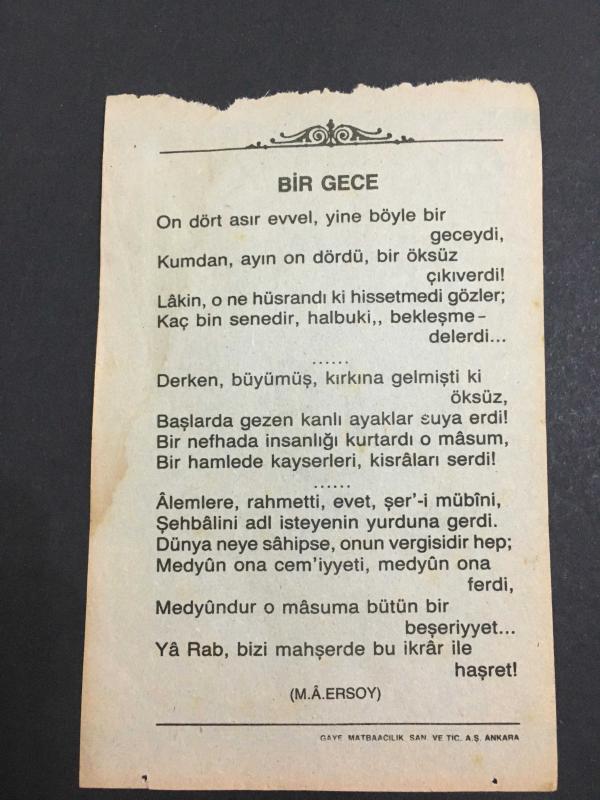 BİR GECE
On dört asır evvel, yine böyle bir
geceydi,
Kumdan, ayın on dördü, bir öksüz
çıkıverdi!
Lâkin, o ne hüsrandı ki hissetmedi gözler;
Kaç bin senedir, halbuki,, bekleşme-
delerdi...
......
Derken, büyümüş, kırkına gelmişti ki
öksüz,
Başlarda gezen kanlı ayaklar suya erdi!
Bir nefhada insanlığı kurtardı o mâsum,
Bir hamlede kayserleri, kisrâları serdi!
......
Âlemlere, rahmetti, evet, şer'-i mübîni,
Şehbâlini adl isteyenin yurduna gerdi.
Dünya neye sâhipse, onun vergisidir hep;
Medyûn ona cem'iyyeti, medyûn ona
ferdi,
Medyûndur o mâsuma bütün bir
beşeriyyet...
Yâ Rab, bizi mahşerde bu ikrâr ile
haşret!
(M.Â.ERSOY)
GAYE MATBAACILIK SAN. VE TİC. A.Ş. ANKARA